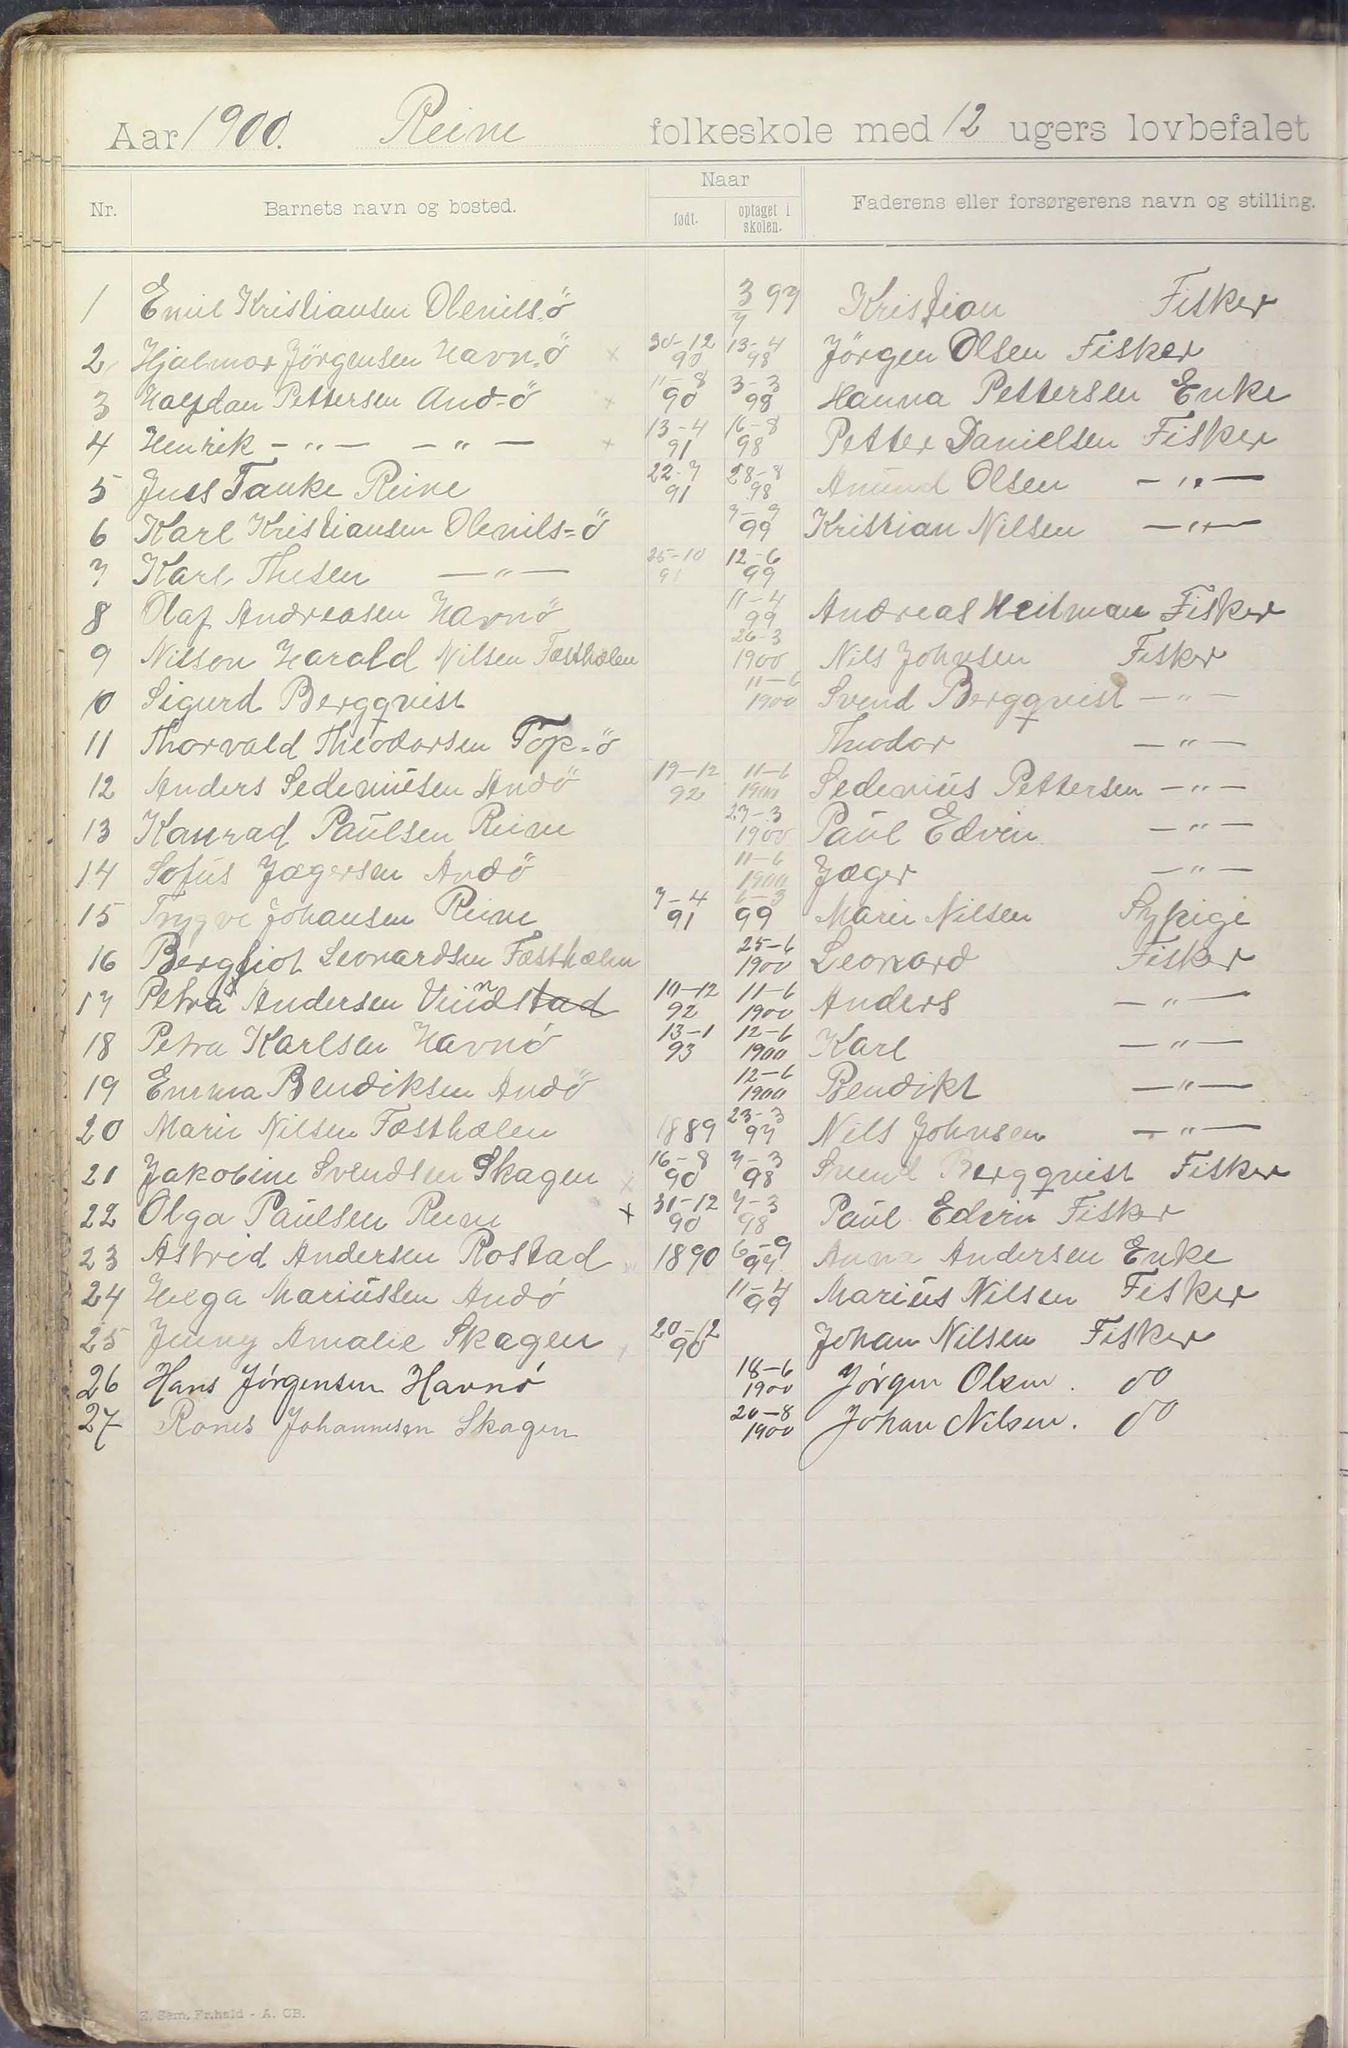 Aar 1900. Reine folkeskole med 12 ugers lovbefalet
Nr. Barnets navn og bosted. Naar født. optaget i skolen. Faderens eller forsørgerens navn og stilling.
1 Emil Kristiansen Olenils-ö 3/7 97 Kristian Fisker
2 Hjalmar Jörgensen Havn-ö × 30-12 90 13-4 98 Jörgen Olsen Fisker
3 Halfdan Pettersen And-ö × 11-8 90 3-3 98 Hanna Pettersen Enke
4 Henrik - " - - " - × 13-4 91 16-8 98 Petter Danielsen Fisker
5 Juss Tanke Reine 22-7 91 28-8 98 Amund Olsen - " -
6 Karl Kristiansen Olenils=ö 7-9 99 Kristian Nilsen - " -
7 Karl Thesen - " - 25-10 91 12-6 99
8 Olaf Andreasen Havnö 11-4 99 Andreas Heitman Fisker
9 Nilson Harald Nilsen Fæsthælen 26-3 1900 Nils Johnsen Fisker
10 Sigurd Bergqvist 11-6 1900 Svend Bergqvist - " -
11 Thorvald Theodorsen Top-ö Theodor - " -
12 Anders Sedeniusen Andö 19-12 92 11-6 1900 Sedenius Pettersen - " -
13 Konrad Paulsen Reine 27-3 1900 Paul Edvin - " -
14 Sofus Jægersen Andö 11-6 1900 Jæger - " -
15 Trygve Johansen Reine 7-4 91 6-3 99 Marie Nilsen Sypige
16 Bergliot Leonardsen Fæsthælen 25-6 1900 Leonard Fisker
17 Petra Andersen Vindstad 10-12 92 11-6 1900 Anders - " -
18 Petra Karlsen Havnö 13-1 93 12-6 1900 Karl - " -
19 Emma Bendiksen Andö 12-6 1900 Bendikt - " -
20 Marie Nilsen Fæsthælen 1889 23-3 97 Nils Johnsen - " -
21 Jakobine Svendsen Skagen × 16-8 90 7-3 98 Svend Bergqvist Fisker
22 Olga Paulsen Reine × 31-12 90 7-3 98 Paul Edvin Fisker
23 Astrid Andersen Rostad 1890 6-9 97 Anna Andersen Enke
24 Helga Mariussen Andö 11-4 99 Marius Nilsen Fisker
25 Jenny Amalie Skagen × 20-12 90 Johan Nilsen Fisker
26 Hans Jörgensen Havnö 18-6 1900 Jörgen Olsen. do
27 Johannesen Skagen 20-8 1900 Johan Nilsen. do
E. Sem, Fr.hald - A. CB.